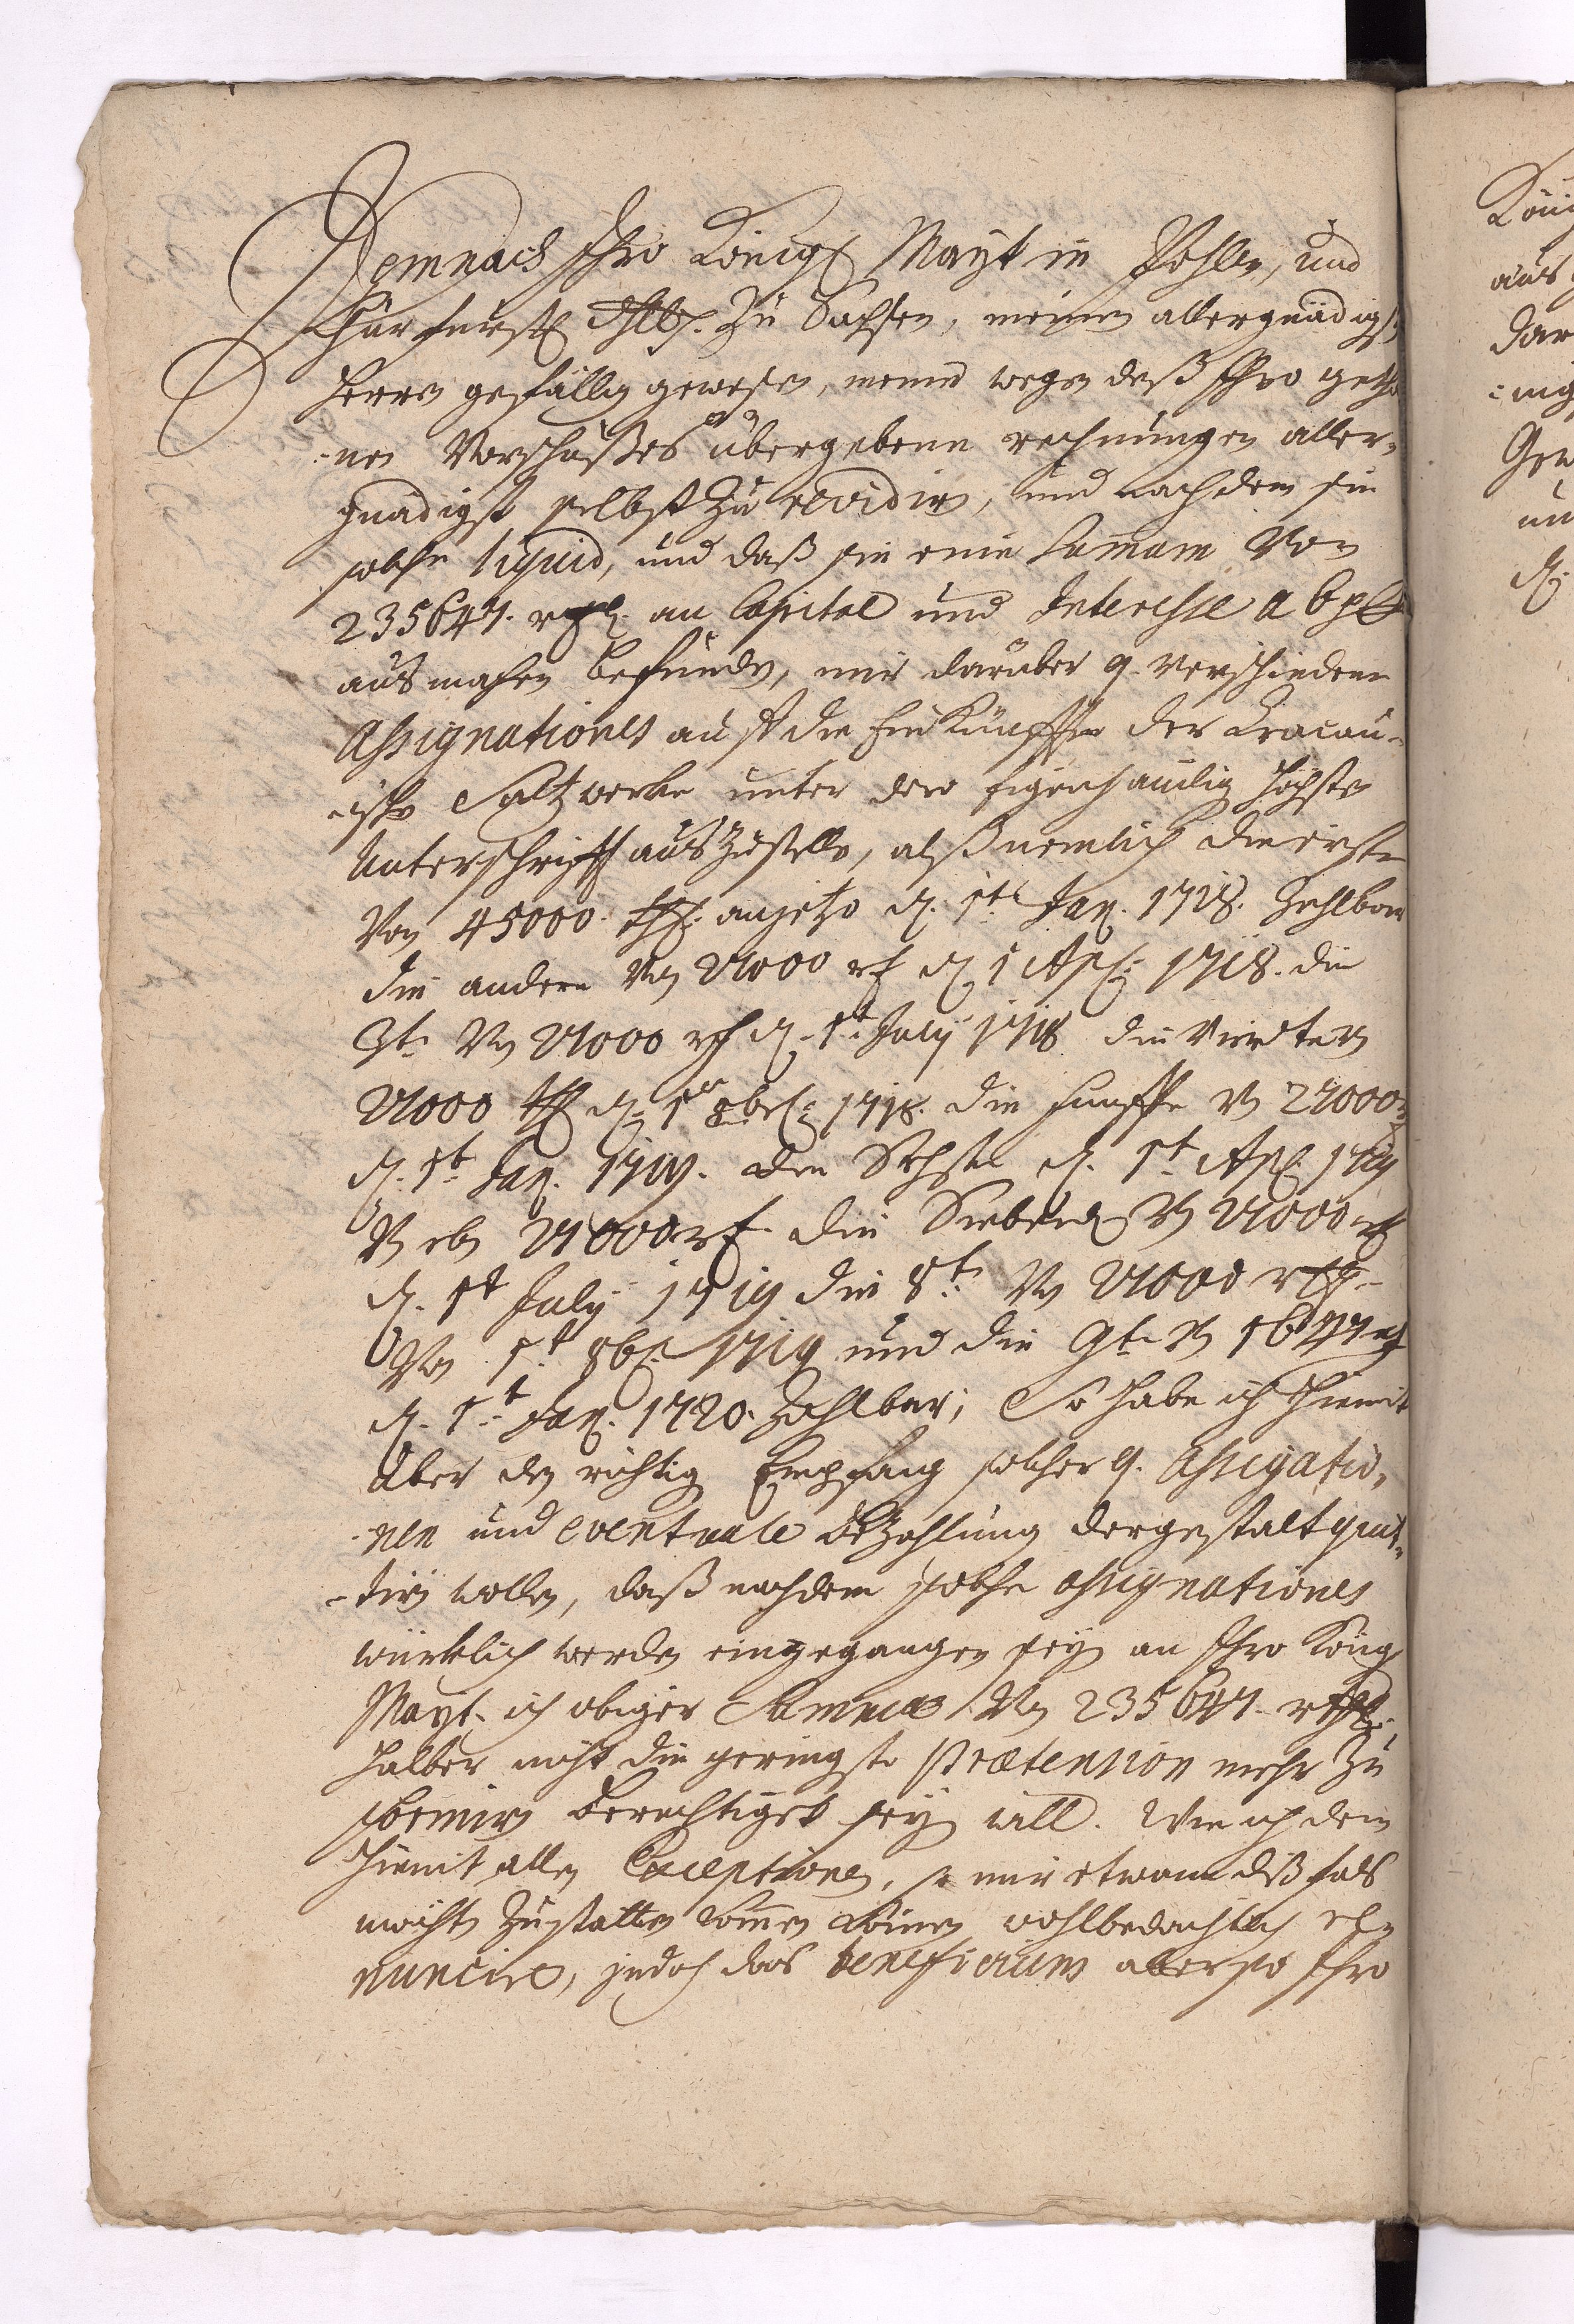 Demnach Ihro Königl Mayt in Pohlen, und
Churfurstl Dhlt. zu Sachsen, meinem allergnädigst
Herrn gefällig gewesen, meine wegen deß Ihro getha
-nen Vorschußes übergebene rechnungen aller-
gnädigst selbst zu revidirn, und nachdem sie
solche liquid, und daß sie eine Summam von
235647. rthl. an Capital und Interesse a 6 pC
ausmachen befunden, mir darüber 9. verschiedene
Assignationes auf die Einkünffte der Cracau-
-ische Saltzwercke unter dero eigenhändig höchsten
Unterschrifft auszustellen, alß nemlich die erste
von 45000. rth. anjetzo d. 1t Jan. 1718. Zahlbar
die andere von 21000 rth d 1 Apl: 1718. die
3te von 21000 rth d. 1t July 1718 die vierdte von
21000 rth d. 1t 8br: 1718. die funffte von 21000
d. 1t Jan. 1719. die Sechste d. 1t Apl. 1719
von 21000 rth. die Siebende von 21000 rth
d. 1t July 1719 die 8te von 21000 rth
von 1t 8br. 1719 und die 9te von
d. 1t Jan. 1720. Zahlbar; So habe ich hiemit
über den richtig Empfang solcher 9. Assignatio-
-nen und eventuale bezahlung dergestalt quit-
-tirn wollen, daß nachdem solche assignationes
würcklich werden eingegangen seyn an Ihro Königl
Mayt. ich obiger Summa von 235647. rthl.
halber nicht die geringste Prætension mehr zu
formirn berechtiget seyn will. Wie ich denn
hiemit allen Exceptionen, so mir etwan deßfals
möchten zustatten kommen können wohlbedächtlich re-
nuncire, jedoch das beneficium aber so Ihro
König
aus
dar